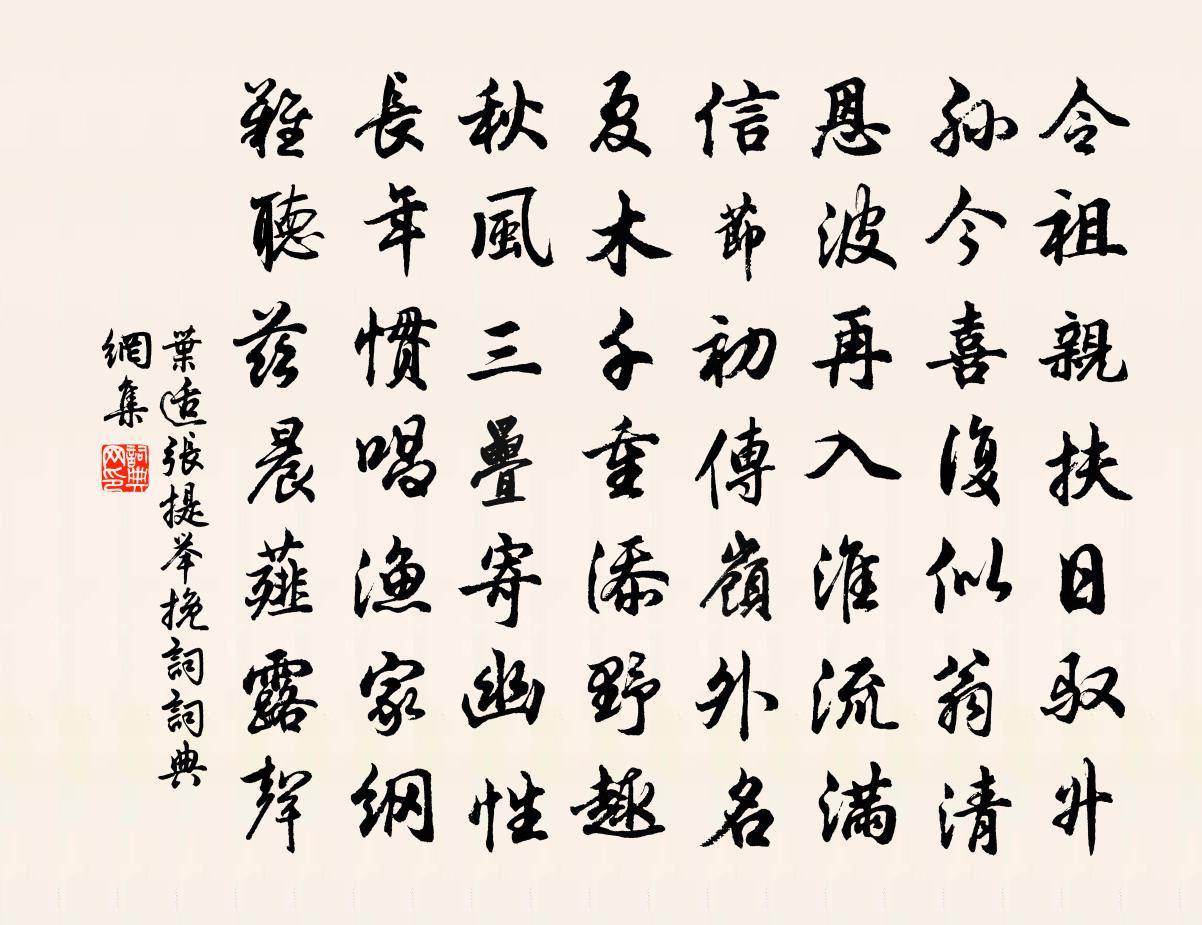 令祖親扶日馭升
孙今喜復似翁清
恩波再入淮流滿
信節初傳嶺外名
夏木千重添野趣
秋風三疊寄幽性
長年慣唱漁家綱
難聽茲晨薤露聲
葉适張提举挽詞詞典
網集
詞典网印